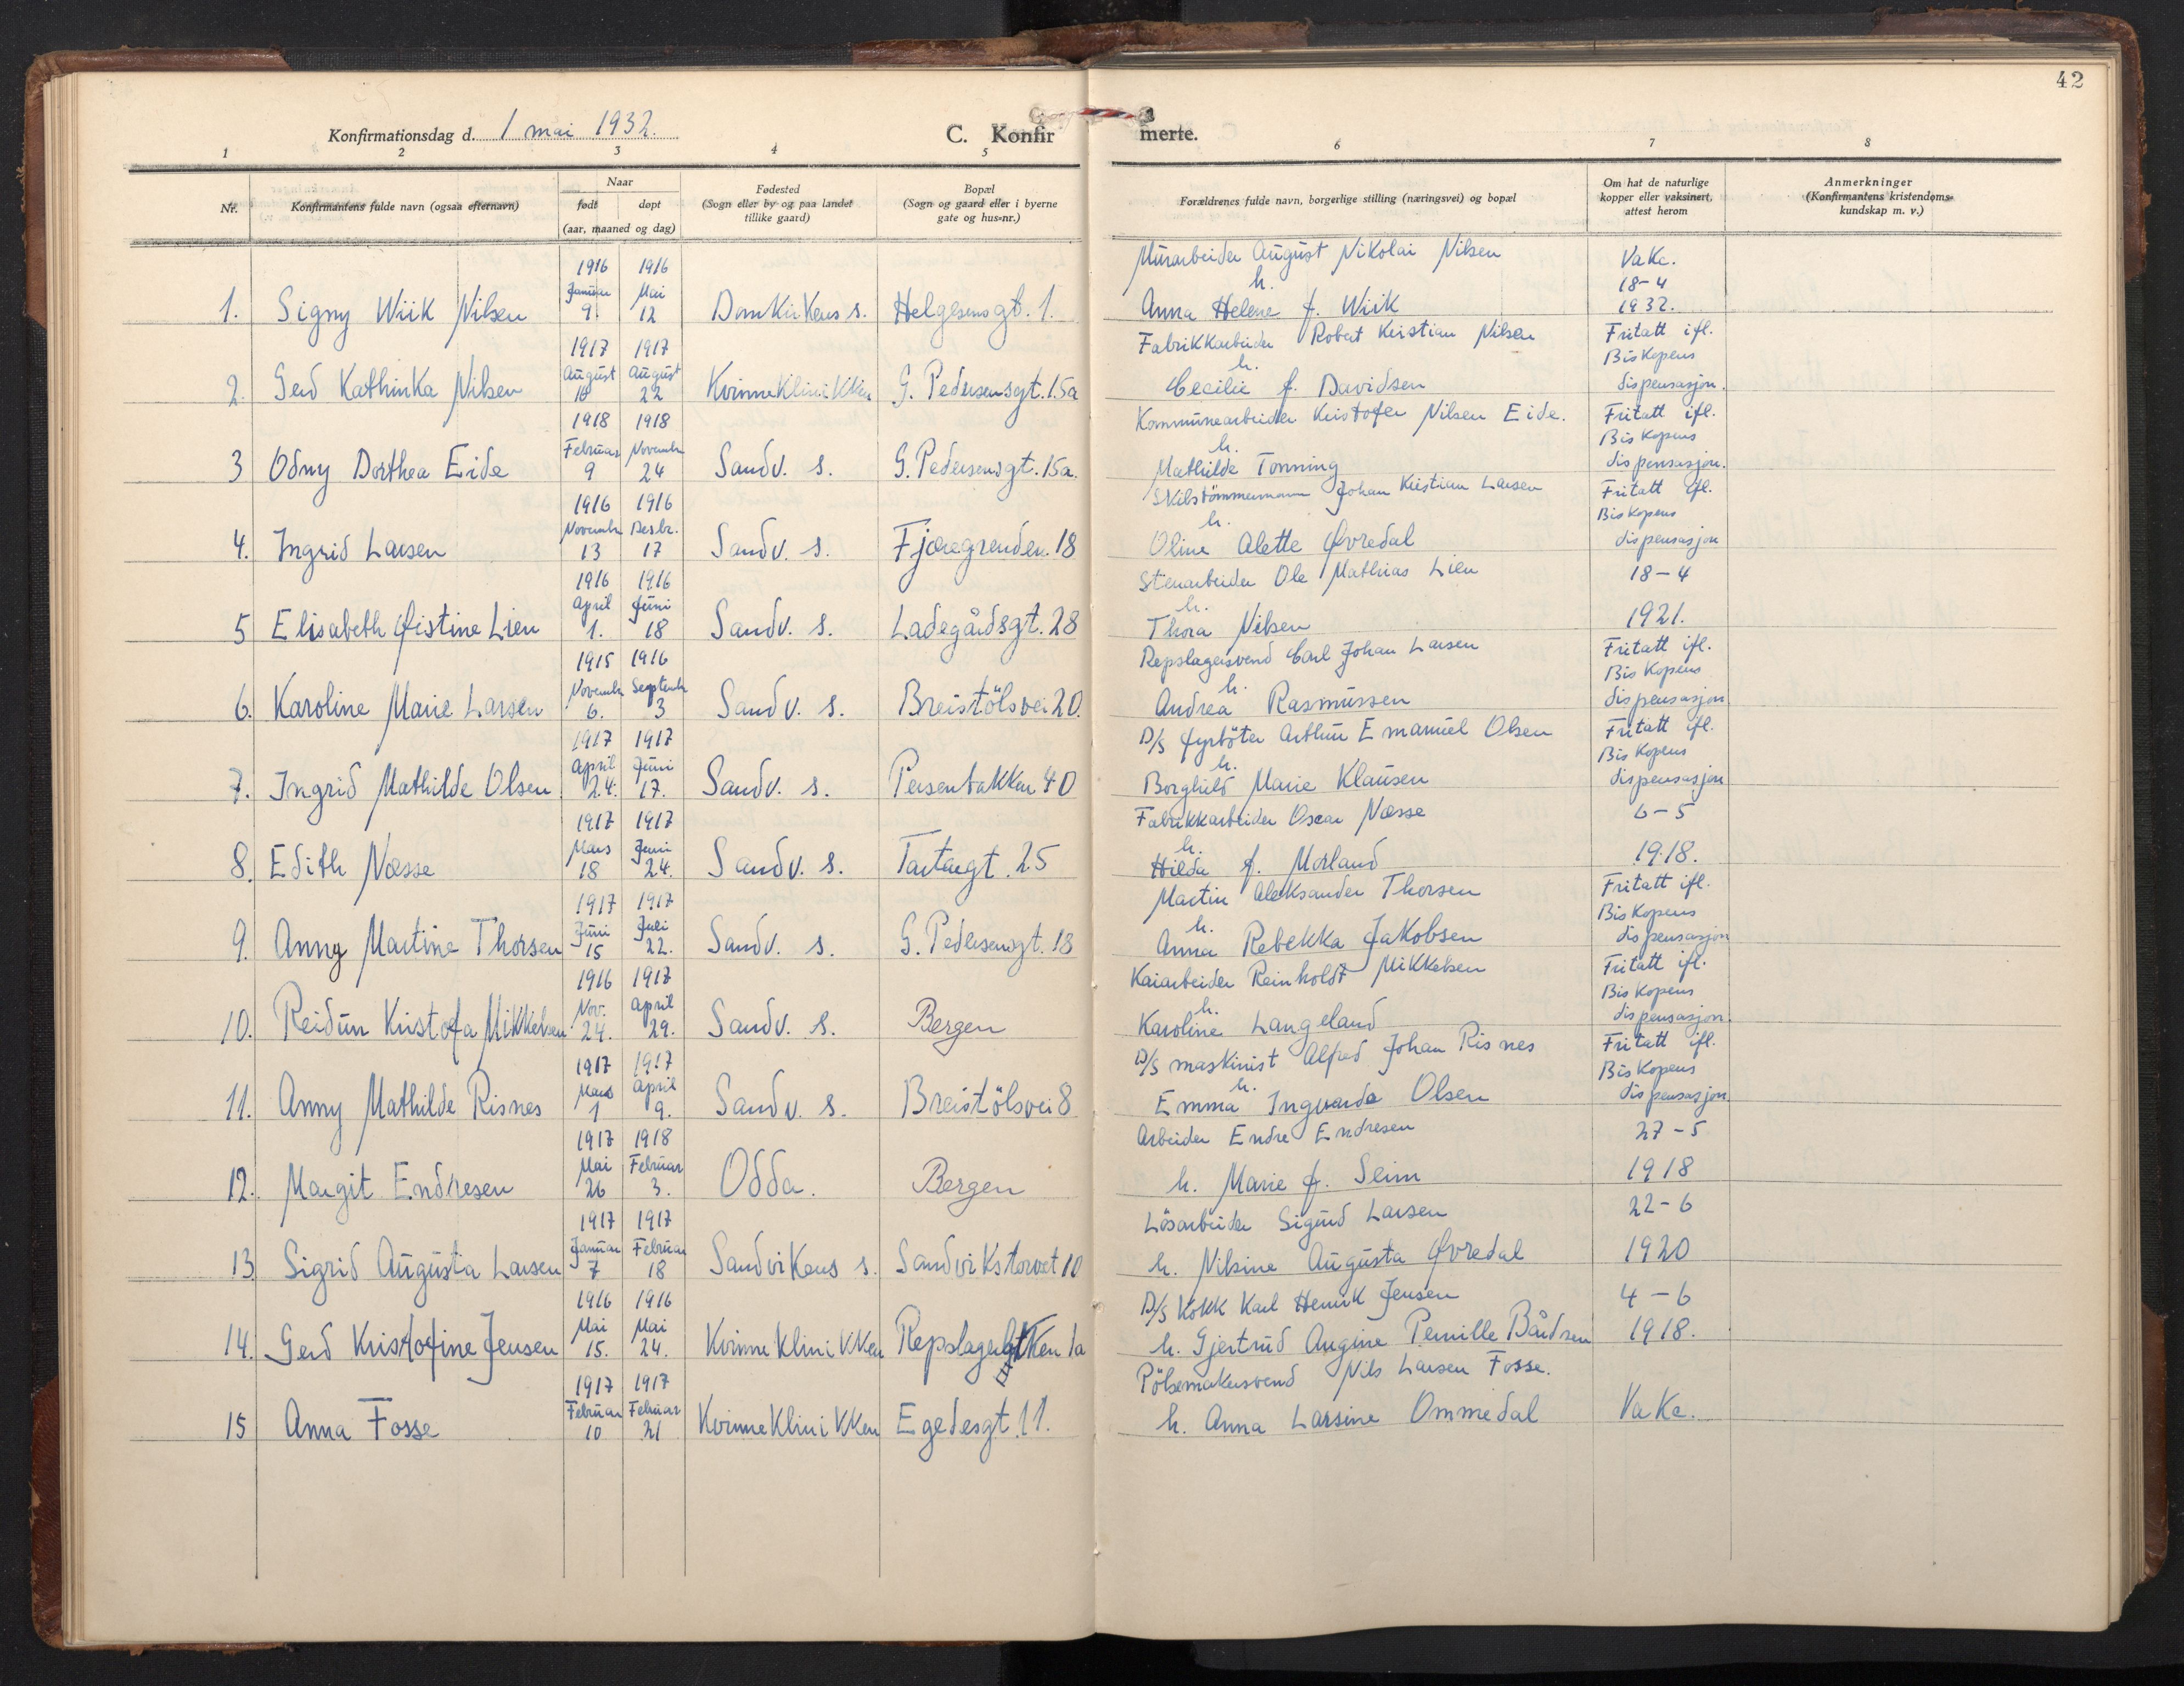 42
Konfirmationsdag d. 1 mai 1932.
C. Konfirmerte.
1 2 3 4 5 6 7 8
Nr.
Konfirmantens fulde navn (ogsaa efternavn)
Naar
født døpt
(aar, maaned og dag)
Fødested
(Sogn eller by og paa landet
tillike gaard)
Bopæl
(Sogn og gaard eller i byerne
gate og hus-nr.)
Forældrenes fulde navn, borgerlige stilling (næringsvei) og bopæl
Om hat de naturlige
kopper eller vaksinert,
attest herom
Anmerkninger
(Konfirmantens kristendoms-
kundskap m. v.)
1916 1916 Murarbeider August Nikolai Nilsen Vakc.
Januar Mai h. 18-4
1. Signy Wiik Nilsen 9. 12 Domkirkens s. Helgesensgt. 1. Anna Helene f. Wiik 1932.
1917 1917 Fabrikkarbeider Robert Kristian Nilsen Fritatt ifl.
August August h. Biskopens
2. Gerd Kathinka Nilsen 10 22 Kvinneklinikken G. Pedersensgt. 15a Cecilie f. Davidsen dispensasjon.
1918 1918 Kommunearbeider Kristofer Nilsen Eide. Fritatt ifl.
Februar Novembr h. Biskopens
3 Odny Dorthea Eide 9 24 Sandv. s. G. Pedersensgt. 15a. Mathilde Tonning dispensasjon.
1916 1916 Skibstömmermann Johan Kristian Larsen Fritatt ifl.
Novembr Desbr. h. Biskopens
4. Ingrid Larsen 13 17 Sandv. s. Fjæregrenden. 18 Oline Alette Øvredal dispensasjon
1916 1916 Stenarbeider Ole Mathias Lien 18-4
April Juni h.
5 Elisabeth Øistine Lien 1. 18 Sandv. s. Ladegårdsgt. 28 Thora Nilsen 1921.
1915 1916 Repslagersvend Carl Johan Larsen Fritatt ifl.
Novembr Septembr h. Biskopens
6. Karoline Marie Larsen 6. 3 Sandv. s. Breistölsvei 20. Andrea Rasmussen dispensasjon
1917 1917 D/s fyrböter Arthur Emanuel Olsen Fritatt ifl.
April Juni h. Biskopens
7. Ingrid Mathilde Olsen 24. 17. Sandv. s. Persenbakken 40 Borghild Marie Klausen dispensasjon
1917 1917 Fabrikkarbeider Oscar Næsse 6-5
Mars Juni h.
8. Edith Næsse 18 24. Sandv. s. Tartargt. 25 Hilda f. Morland 1918.
1917 1917 Martin Aleksander Thorsen Fritatt ifl.
Juni Juli h. Biskopens
9. Anny Martine Thorsen 15 22. Sandv. s. G. Pedersensgt. 18 Anna Rebekka Jakobsen dispensasjon
1916 1917 Kaiarbeider Reinholdt Mikkelsen Fritatt ifl.
Nov. April h. Biskopens
10. Reidun Kristofa Mikkelsen 24. 29. Sandv. s. Bergen Karoline Langeland dispensasjon.
1917 1917 D/s maskinist Alfred Johan Risnes Fritatt ifl.
Mars April h. Biskopens
11. Anny Mathilde Risnes 1 9. Sandv. s. Breistölsvei 8 Emma Ingvarda Olsen dispensasjon.
1917 1918 Arbeider Endre Endresen 27-5
Mai Februar
12. Margit Endresen 26 3. Odda. Bergen h. Marie f. Seim 1918
1917 1917 Lösarbeider Sigurd Larsen 22-6
Januar Februar
13. Sigrid Augusta Larsen 7 18 Sandvikens s. Sandvikstorvet 10 h. Nilsine Augusta Øvredal 1920
1916 1916 D/s Kokk Karl Henrik Jensen 4-6
Mai Mai
14. Gerd Kristofine Jensen 15. 24. Kvinneklinikken 1a h. Gjertrud Augine Pernille Bårdsen 1918.
1917 1917 Pölsemakersvend Nils Larsen Fosse.
Februar Februar
15 Anna Fosse 10 21 Kvinneklinikken Egedesgt. 11. h. Anna Larsine Ommedal Vakc.